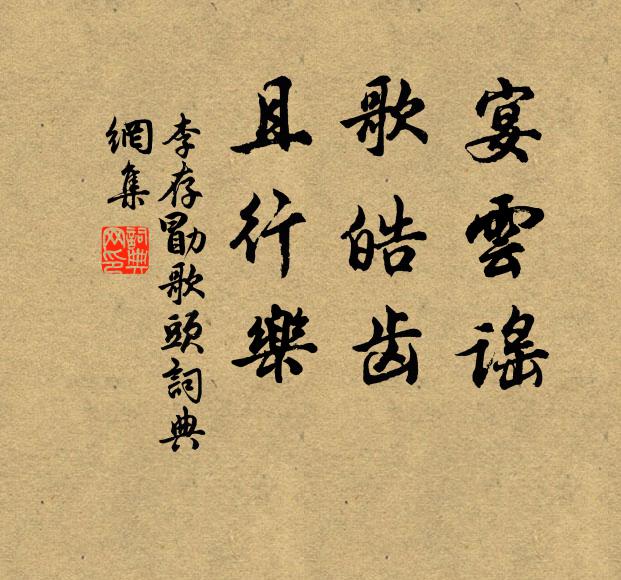 宴雲謠
歌皓齿
且行樂
李存勖歌頭詞典
網集
詞典
网印